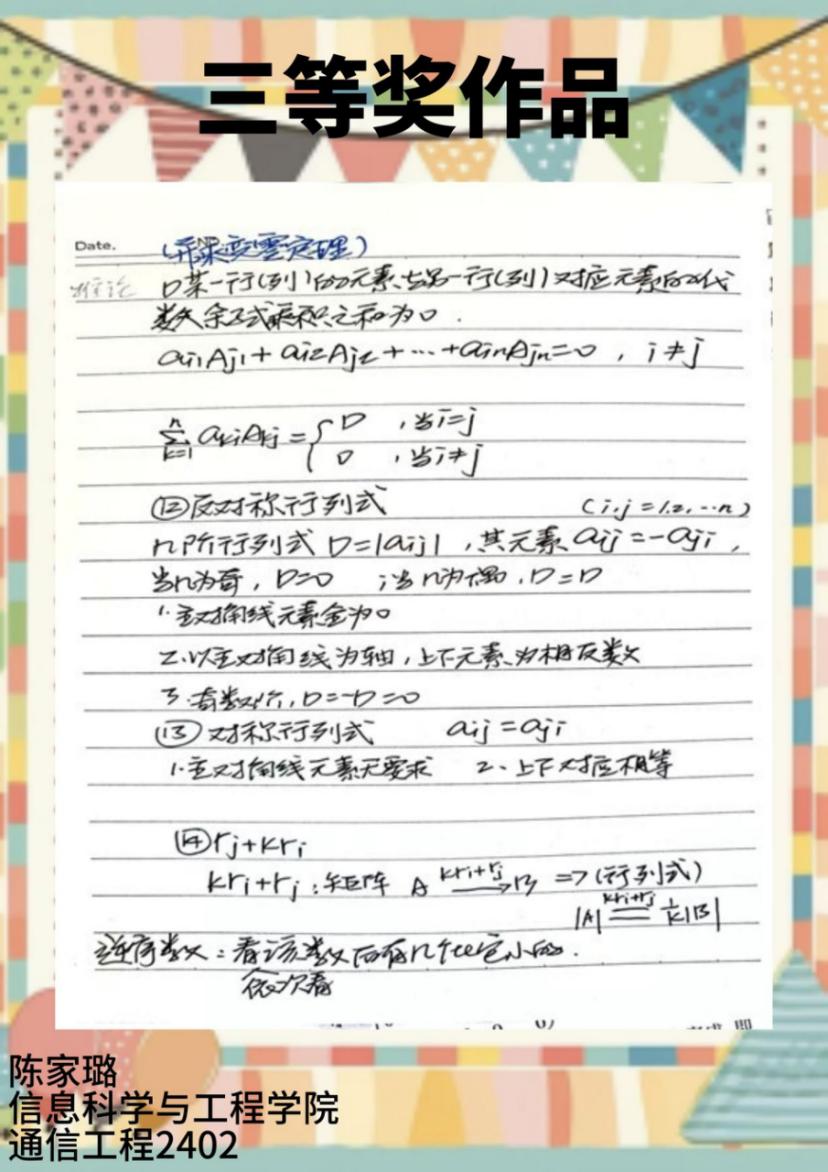 三等奖作品
Date.
(异乘变零定理)
推论 D某一行(列)的元素与另一行(列)对应元素的代
数余子式乘积之和为0.
ai1Aj1+ai2Aj2+…+ainAjn=0,i≠j
∑(k=1→n) akiAkj={D ,当i=j
0 ,当i≠j
⑫反对称行列式 (i,j=1,2,…n)
n阶行列式D=|aij|,其元素aij=-aji,
当n为奇,D=0 ;当n为偶,D=D
1.主对角线元素全为0
2.以主对角线为轴,上下元素为相反数
3.奇数阶,D=-D=0
⑬对称行列式 aij=aji
1.主对角线元素无要求 2.上下对应相等
⑭rj+kri
kri+rj:矩阵 A —kri+rj→ B =>(行列式)
|A| ==kri+rj== 1/k|B|
逆序数:看该数后有几个比它小的.
依次看
陈家璐
信息科学与工程学院
通信工程2402